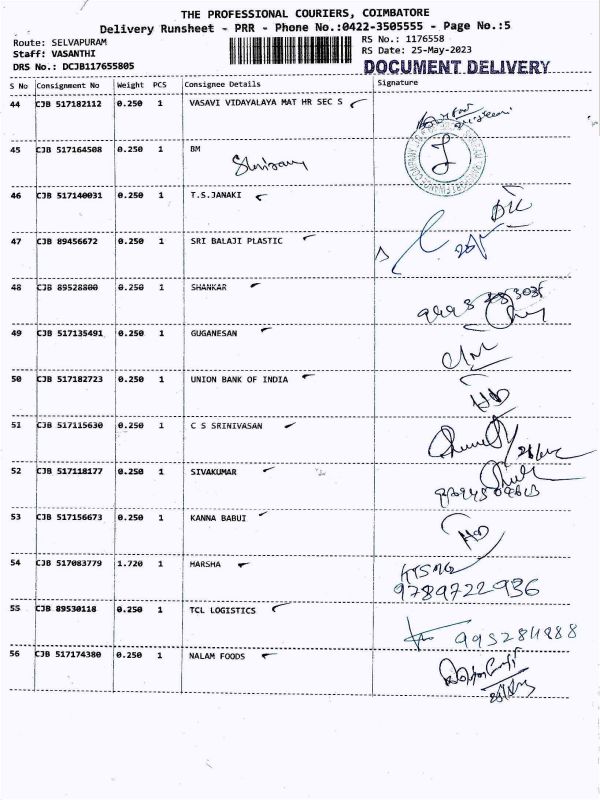 THE PROFESSIONAL COURIERS, COIMBATORE
Delivery Runsheet - PRR - Phone No.:0422-3505555 - Page No.:5
Route: SELVAPURAM
Staff: VASANTHI
DRS No.: DCJB117655805
RS No.: 1176558
RS Date: 25-May-2023
DOCUMENT DELIVERY
S No Consignment No Weight PCS Consignee Details Signature
44 CJB 517182112 0.250 1 VASAVI VIDAYALAYA MAT HR SEC S
45 CJB 517164508 0.250 1 BM
46 CJB 517140031 0.250 1 T.S.JANAKI
47 CJB 89456672 0.250 1 SRI BALAJI PLASTIC
48 CJB 89528800 0.250 1 SHANKAR
49 CJB 517135491 0.250 1 GUGANESAN
50 CJB 517182723 0.250 1 UNION BANK OF INDIA
51 CJB 517115630 0.250 1 C S SRINIVASAN
52 CJB 517118177 0.250 1 SIVAKUMAR
53 CJB 517156673 0.250 1 KANNA BABUI
54 CJB 517083779 1.720 1 HARSHA
9789722936
55 CJB 89530118 0.250 1 TCL LOGISTICS
56 CJB 517174380 0.250 1 NALAM FOODS